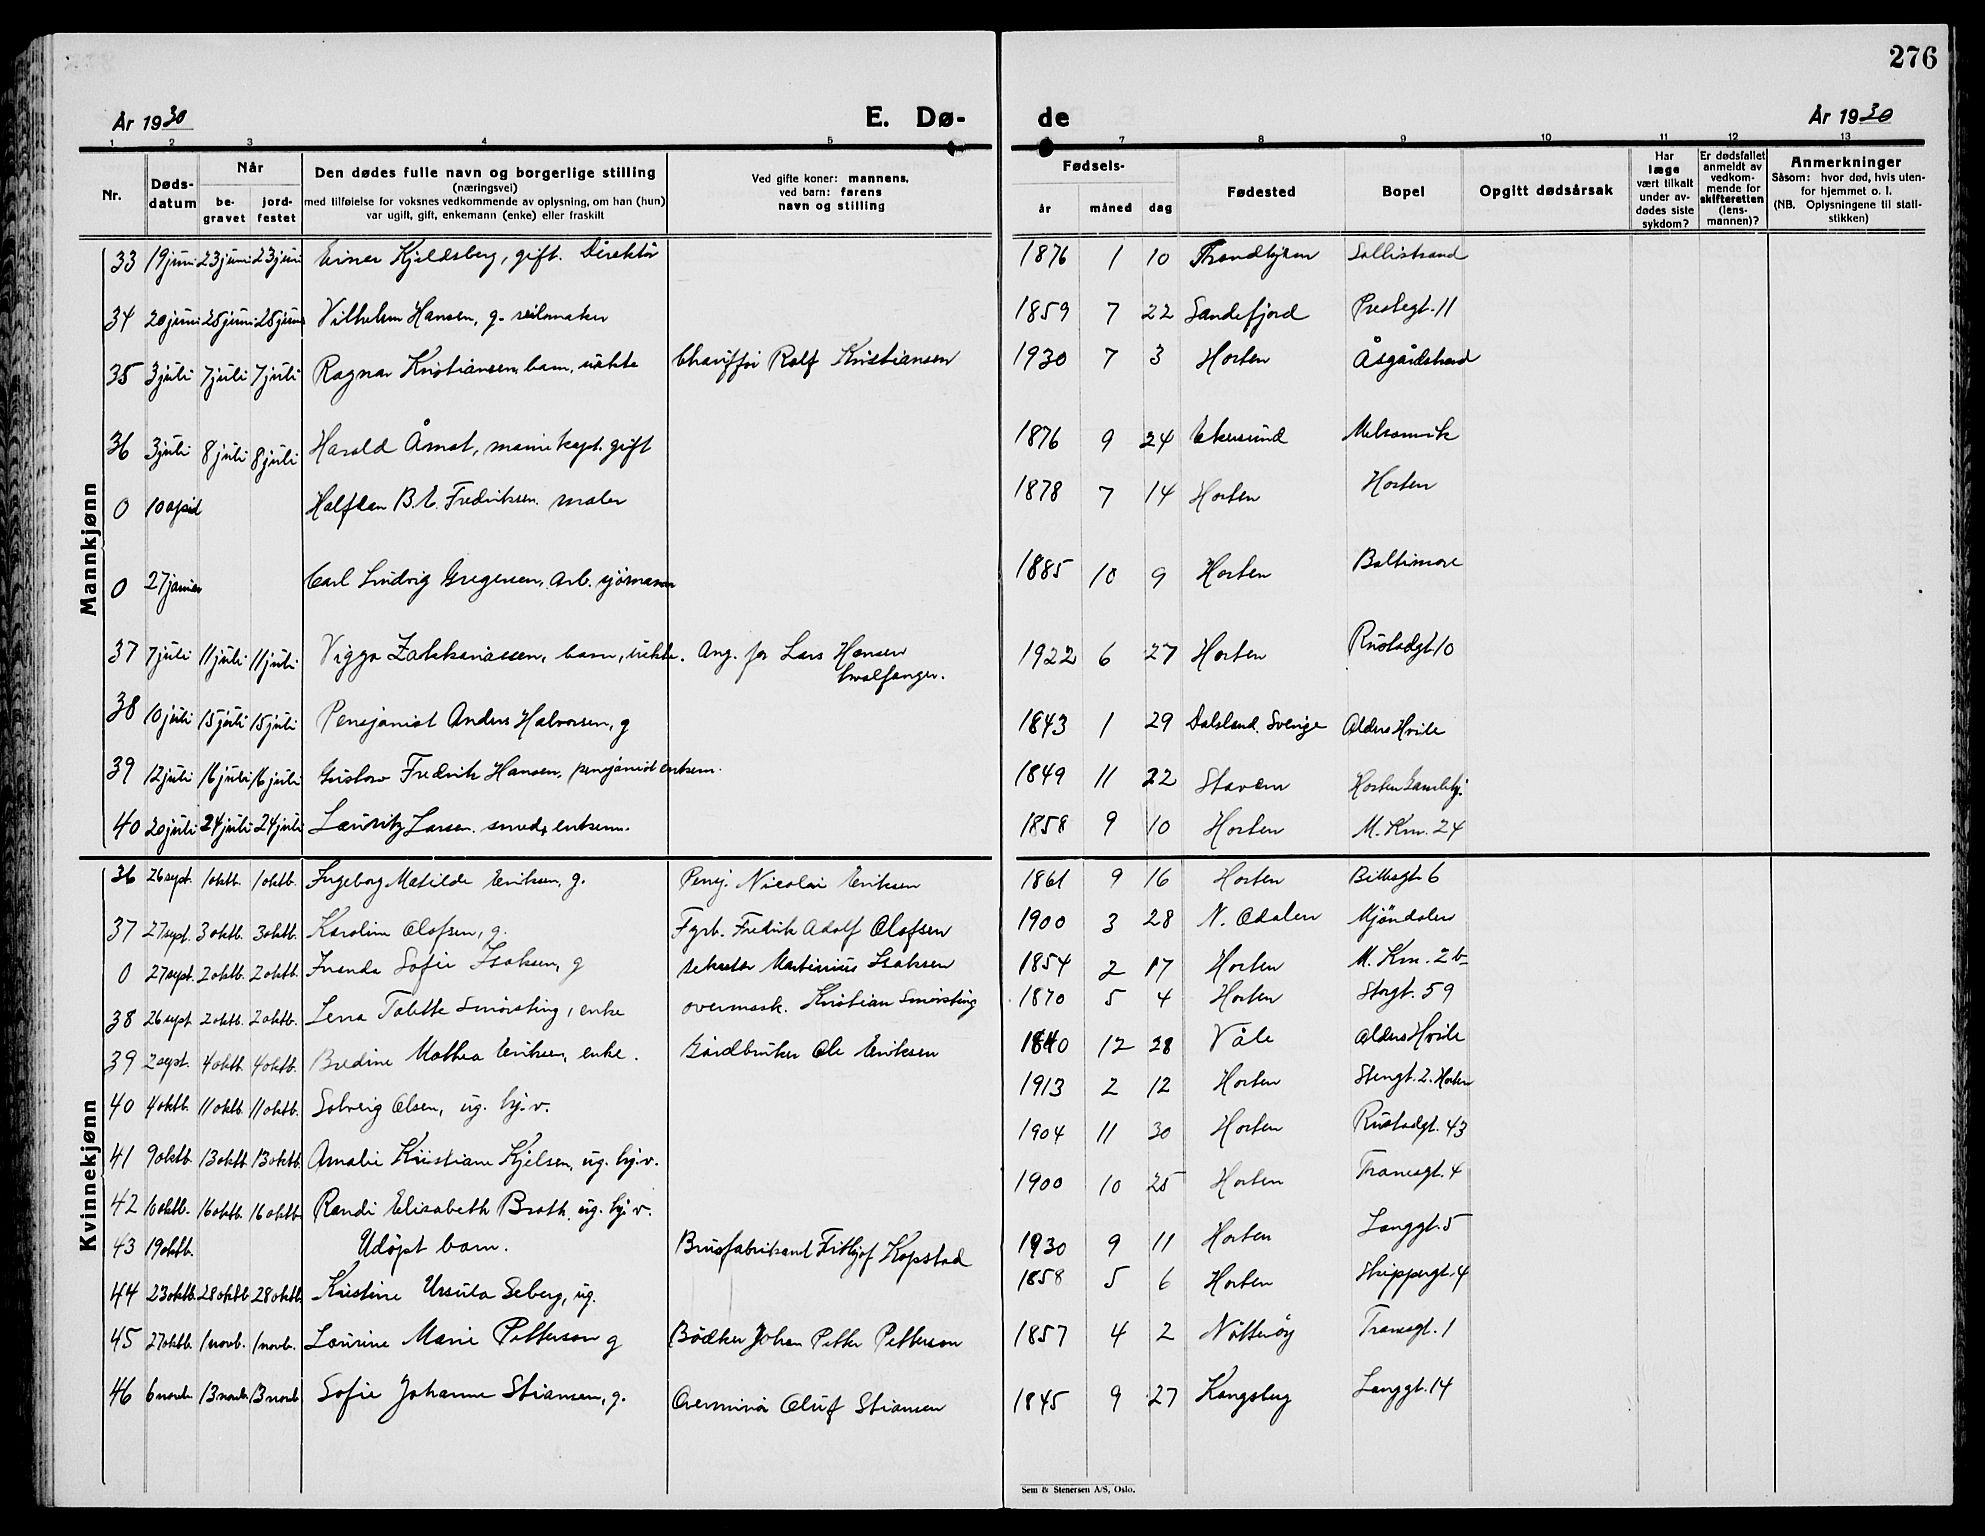 276
År 1930 E. Dø- de År 1930
1 2 3 4 5 6 7 8 9 10 11 12 13
Nr. Døds-datum Når be-gravet jord-festet Den dødes fulle navn og borgerlige stilling (næringsvei) med tilføielse for voksnes vedkommende av oplysning, om han (hun) var ugift, gift, enkemann (enke) eller fraskilt Ved gifte koner: mannens, ved barn: farens navn og stilling Fødsels- år måned dag Fødested Bopel Opgitt dødsårsak Har læge vært tilkalt under av-dødes siste sykdom? Er dødsfallet anmeldt av vedkom-mende for skifteretten (lens-mannen)? Anmerkninger Såsom: hvor død, hvis uten-for hjemmet o. l. (NB. Oplysningene til stati-stikken)
Mannkjønn
33 19 juni 23 juni 23 juni Einar Kjeldsberg, gift. Direktör 1876 1 10 Trondhjem Sollistrand
34 20 juni 25 juni 25 juni Vilhelm Hansen, g. seilmaker 1859 7 22 Sandefjord Prestegt. 11
35 3 juli 7 juli 7 juli Ragnar Kristiansen, barn, uekte Chaufför Rolf Kristiansen 1930 7 3 Horten Åsgårdstrand
36 3 juli 8 juli 8 juli Harald Åmot, marinekapt. gift 1876 9 24 Ekersund Melsomvik
0 10 april Halfdan B. E. Fredriksen. maler 1878 7 14 Horten Horten
0 27 januar Carl Ludvig Gregersen, Arb. sjömann 1885 10 9 Horten Baltimore
37 7 juli 11 juli 11 juli Viggo Zakkariassen, barn, uekte. Ang. far Lars Hansen 1922 6 27 Horten Rustadgt 10
hvalfanger.
38 10 juli 15 juli 15 juli Pensjonist Anders Halvorsen, g 1843 1 29 Dalsland. Sverige Alders Hvile
39 12 juli 16 juli 16 juli Gustav Fredrik Hansen, pensjonist enkem. 1849 11 22 Stavern Horten Gamlehj.
40 20 juli 24 juli 24 juli Lauritz Larsen. smed, enkem. 1858 9 10 Horten M. Km. 24
Kvinnekjønn
36 26 sept. 1 oktb. 1 oktb. Ingeborg Matilde Eriksen, g. Pensj. Nicolai Eriksen 1861 9 16 Horten Billesgt. 6
37 27 sept. 3 oktb. 3 oktb. Karoline Olafsen, g. Fyrb. Fredrik Adolf Olafsen 1900 3 28 N. Odalen Mjöndalen
0 27 sept. 2 oktb. 2 oktb. Sofie Isaksen, g sekretær Martinius Isaksen 1854 2 17 Horten M. Km. 2 b
38 26 sept 2 oktb. 2 oktb. Lena Tolette Smörsting, enke overmask. Kristian Smörsting 1870 5 4 Horten Storgt. 59
39 2 sept. 4 oktb. 4 oktb. Bredine Mathea Eriksen, enke. Gårdbruker Ole Eriksen 1840 12 28 Våle Alders Hvile
40 4 oktb. 11 oktb. 11 oktb. Solveig Olsen, ug. hj. v. 1913 2 12 Horten Stengt. 2. Horten
41 9 oktb. 13 oktb. 13 oktb. Amalie Kristiane Kjelsen, ug. hj. v. 1904 11 30 Horten Rustadgt. 43
42 10 oktb. 16 oktb. 16 oktb. Randi Elisabeth Broth, ug. hj. v. 1900 10 25 Horten Tranesgt. 4
43 19 oktb. Udöpt barn. Brusfabrikant Fithjof Kopstad 1930 9 11 Horten Langgt. 5
44 23 oktb. 28 oktb. 28 oktb. Kristine Ursula Seberg, ug. 1858 5 6 Horten Skippergt. 4
45 27 oktb. 1 novb. 1 novb. Laurine Marie Petterson g Bödker Johan Petter Petterson 1857 4 2 Nötteröy Tranesgt. 1
46 6 novb 13 novb 13 novb Sofie Johanne Stiansen, g. Overminör Oluf Stiansen 1845 9 27 Kongsberg Langgt. 14
Sem & Stenersen A/S, Oslo.